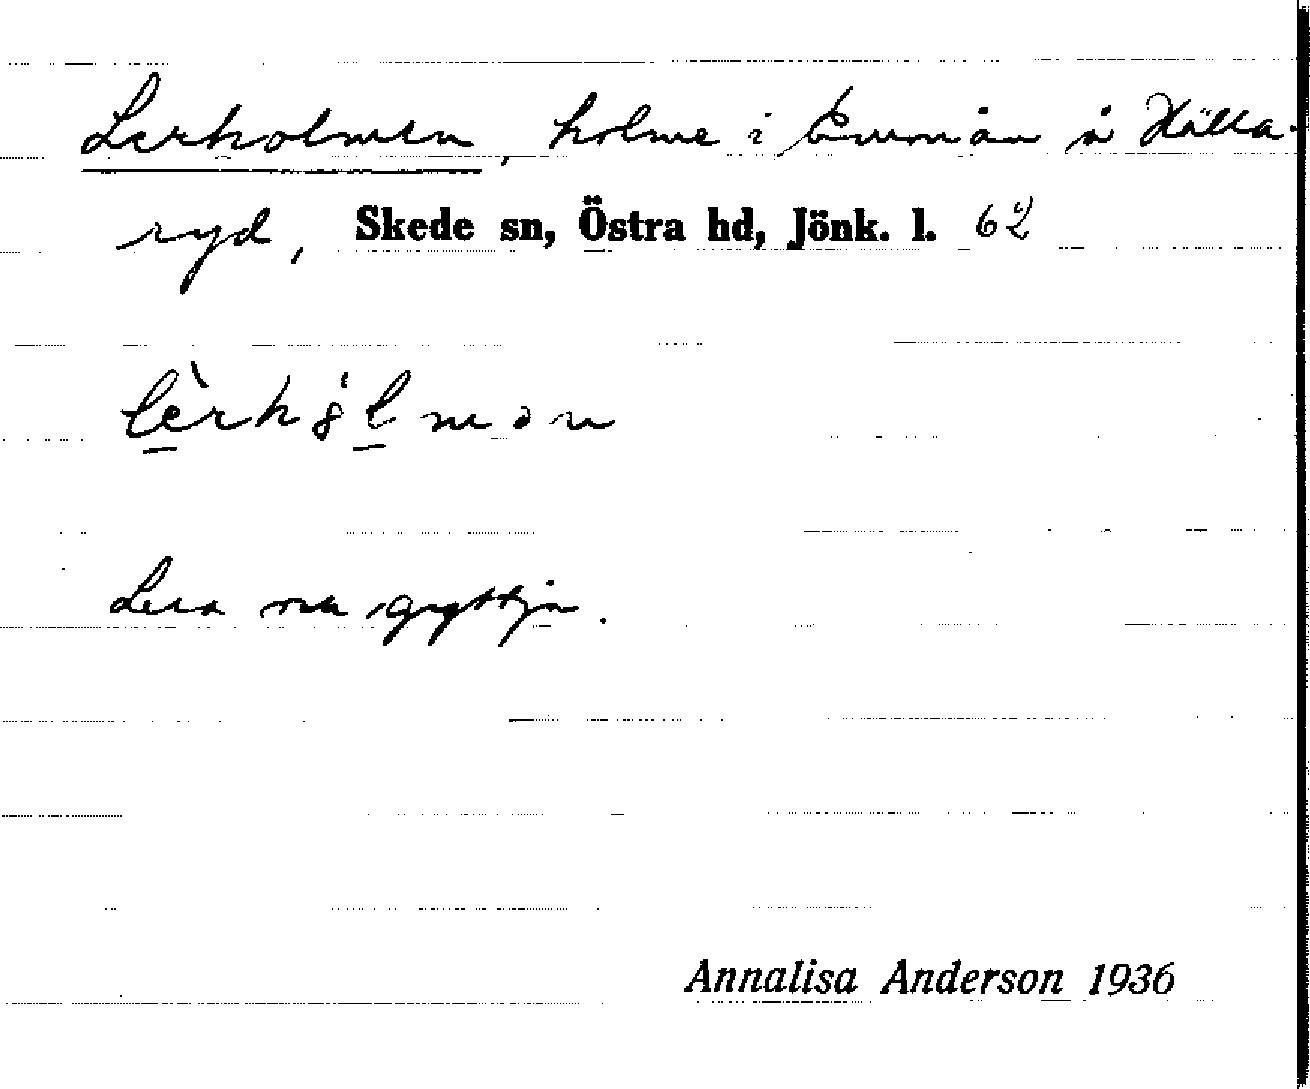 Lerholmen, holme i Emmån å Hälla-
ryd, Skede sn, Östra hd, Jönk. l. 62
lèrhólmən
Lera o gyttja.
Annalisa Anderson 1936